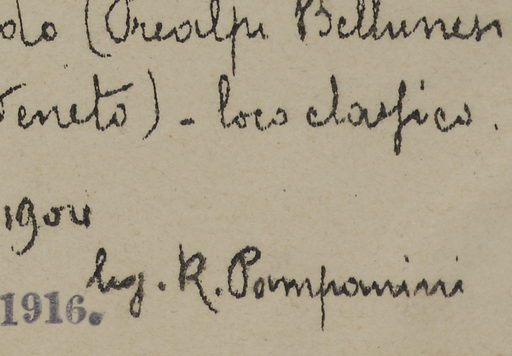 do (Prealpi Bellunesi
Veneto) - loco classico.
1904
leg. R. Pampanini
1916.